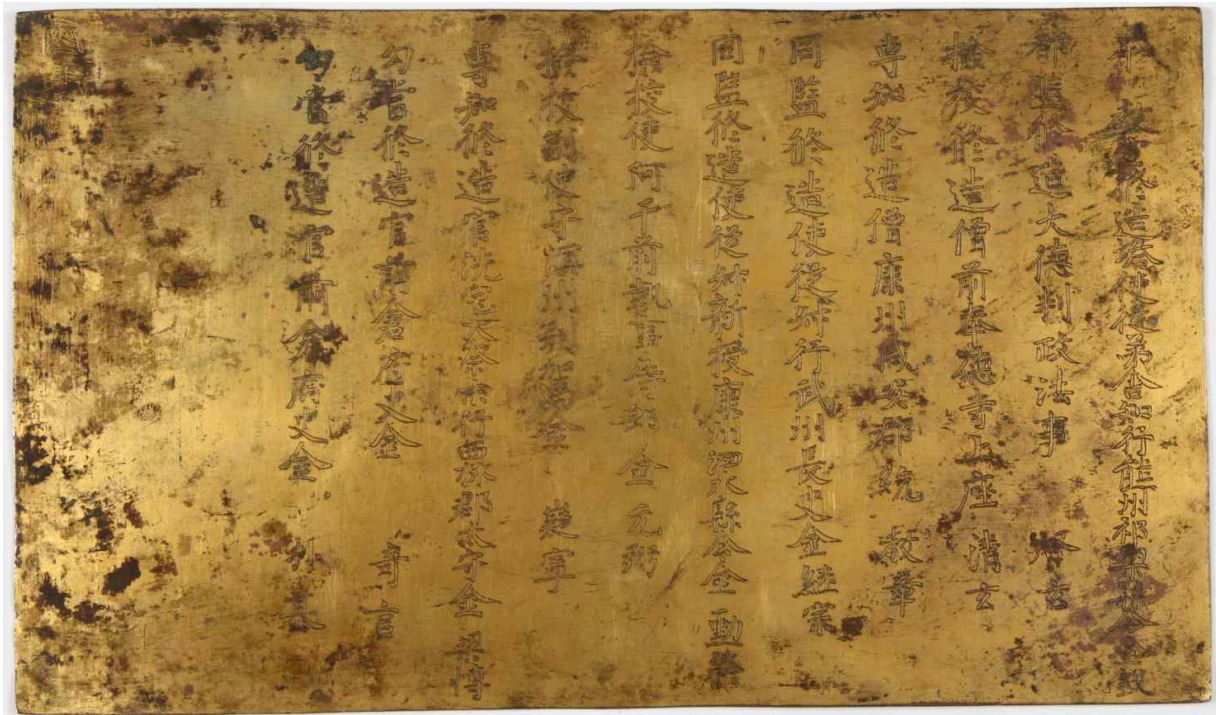 奉 敎宣修造塔使從弟舍知行熊州祁梁縣令金銳
都監修造大德判政法事 啓玄
檢校修造僧前奉德寺上座 清玄
専知修造僧康州咸安郡統 教章
同監修造使從叔行武州長史金繼宗
同監修造使從叔新授康州泗水縣令金勳榮
檢校使阿干前執事侍郎 金元弼
檢校副使守溟州別駕金 嶷寧
専知修造官洗宅大奈末行西林郡太守金梁博
勾當修造官前倉府史金 奇言
勾當修造官前倉府史金